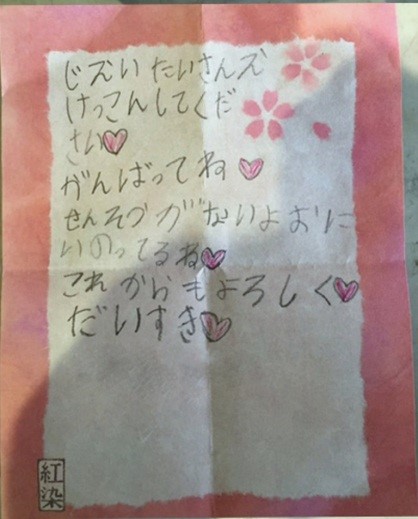 じえい たいさんズ
けっこんしてくだ
さい♥
がんばってね♥
せんそうがないよおに
いのってるね♥
これからもよろしく♥
だいすき♥
紅染